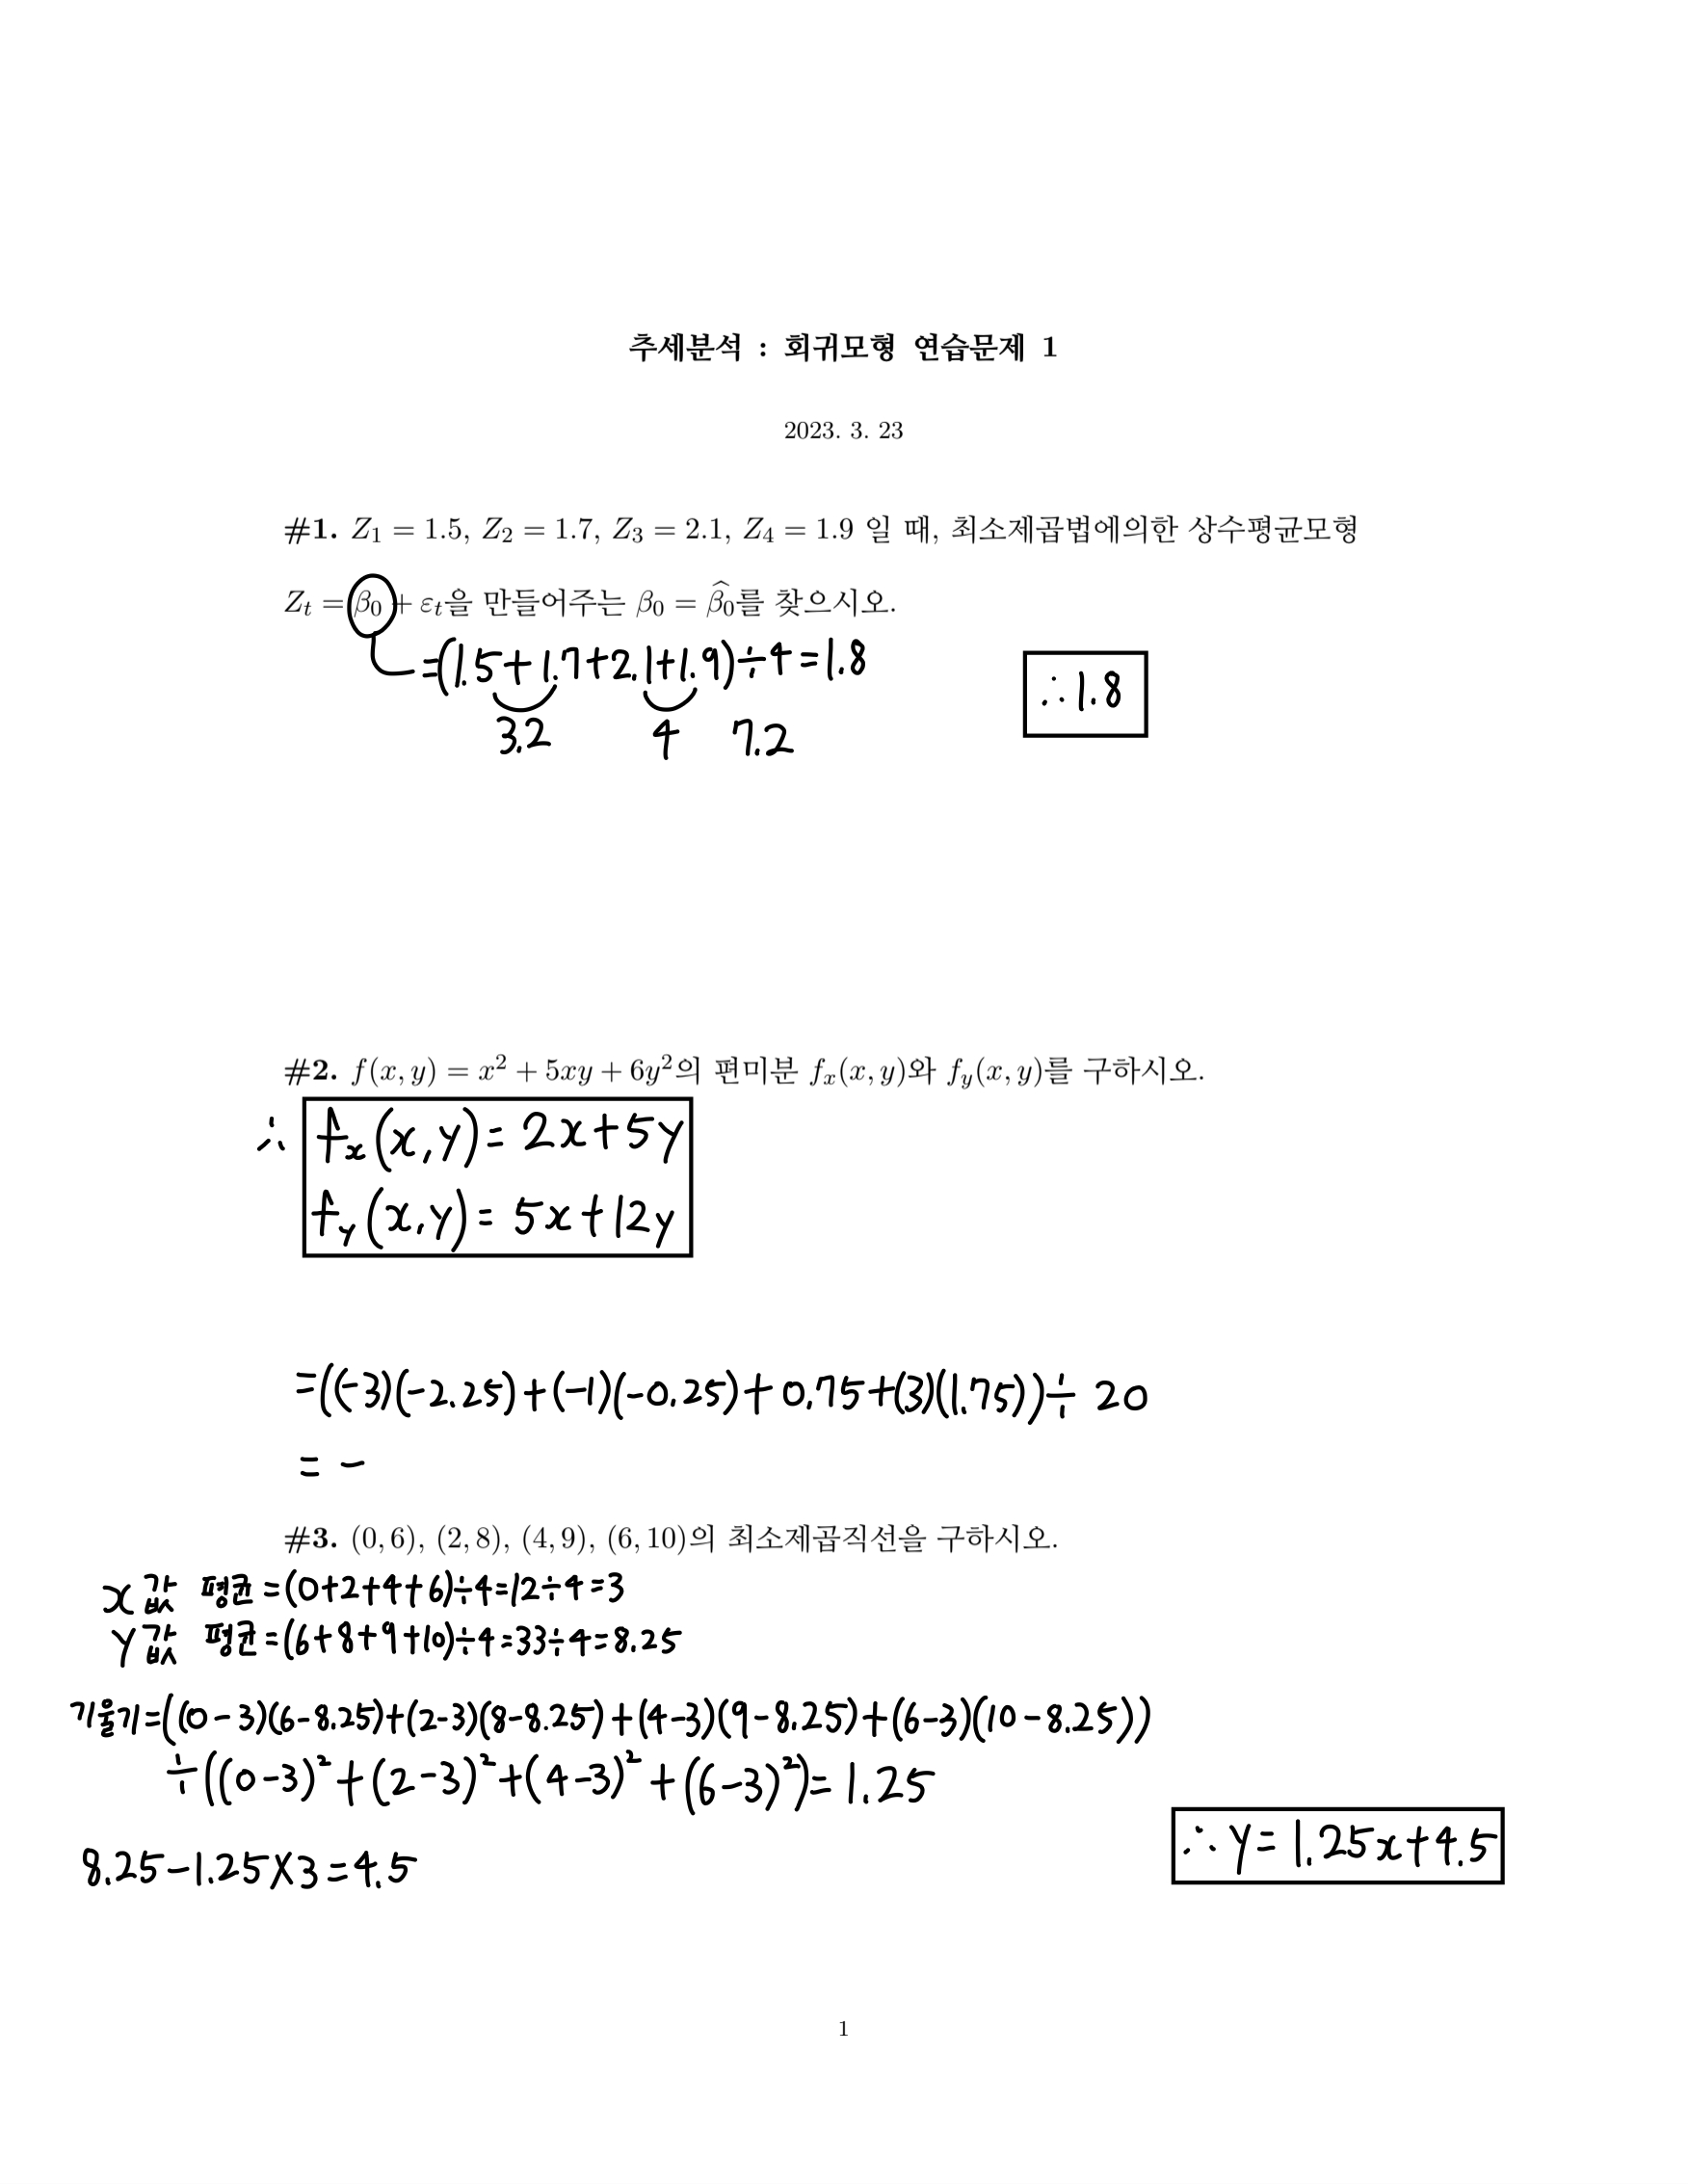 추세분석 : 회귀모형 연습문제 1
2023. 3. 23
#1. Z₁ = 1.5, Z₂ = 1.7, Z₃ = 2.1, Z₄ = 1.9 일 때, 최소제곱법에의한 상수평균모형
Zₜ = β₀ + εₜ을 만들어주는 β₀ = β̂₀를 찾으시오.
=(1.5+1.7+2.1+1.9)÷4=1.8
∴1.8
3.2 4 7.2
#2. f(x, y) = x² + 5xy + 6y²의 편미분 fₓ(x, y)와 f_y(x, y)를 구하시오.
∴ fₓ(x,y)= 2x+5y
f_y(x,y)= 5x+12y
=((-3)(-2.25)+(-1)(-0.25)+0.75+(3)(1.75))÷ 20
= -
#3. (0, 6), (2, 8), (4, 9), (6, 10)의 최소제곱직선을 구하시오.
x값 평균=(0+2+4+6)÷4=12÷4=3
y값 평균=(6+8+9+10)÷4=33÷4=8.25
기울기=((0-3)(6-8.25)+(2-3)(8-8.25)+(4-3)(9-8.25)+(6-3)(10-8.25))
÷((0-3)²+(2-3)²+(4-3)²+((6-3)²)=1.25
∴y=1.25x+4.5
8.25-1.25×3=4.5
1